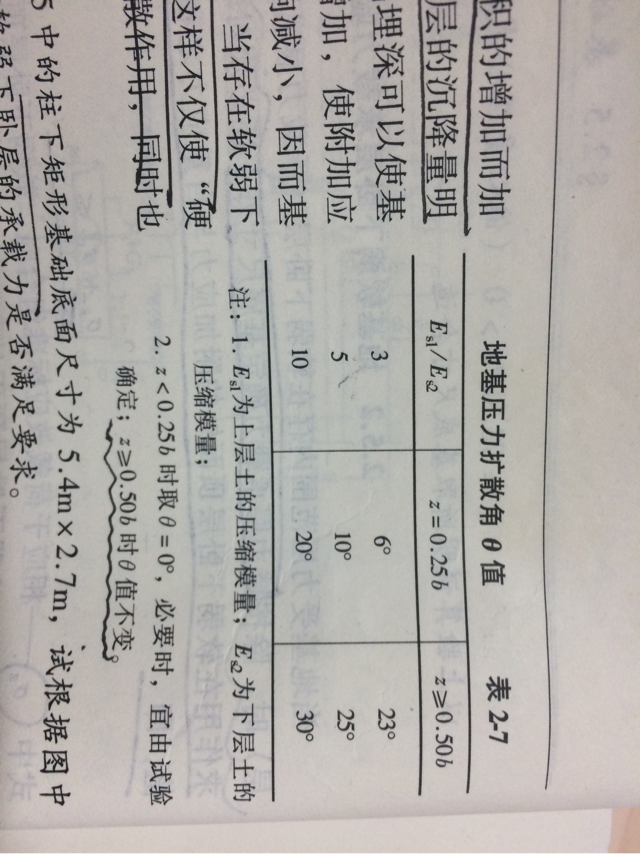 积的增加而加
层的沉降量明
埋深可以使基
加，使附加应
减小，因而基
当存在软弱下
这样不仅使“硬
散作用，同时也
地基压力扩散角 θ 值 表 2-7
Es1/Es2 z=0.25b z≥0.50b
3 6° 23°
5 10° 25°
10 20° 30°
注：1. Es1为上层土的压缩模量；Es2为下层土的
压缩模量；
2. z<0.25b 时取 θ=0°，必要时，宜由试验
确定；z≥0.50b 时 θ 值不变。
5 中的柱下矩形基础底面尺寸为 5.4m×2.7m，试根据图中
软弱下卧层的承载力是否满足要求。